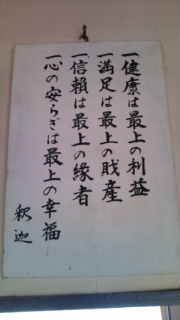 一健康は最上の利益
一満足は最上の財産
一信頼は最上の縁者
一心の安らぎは最上の幸福
釈迦